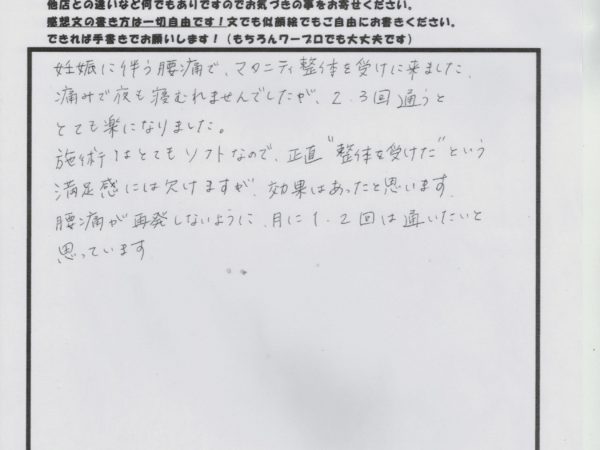 他店との違いなど何でもありですのでお気づきの事をお寄せください。
感想文の書き方は一切自由です！文でも似顔絵でもご自由にお書きください。
できれば手書きでお願いします！（もちろんワープロでも大丈夫です）
妊娠に伴う腰痛で、マタニティ整体を受けに来ました。
痛みで夜も寝むれませんでしたが、2.3回通うと
とても楽になりました。
施術はとてもソフトなので、正直"整体を受けた"という
満足感には欠けますが、効果はあったと思います。
腰痛が再発しないように、月に1.2回は通いたいと
思っています